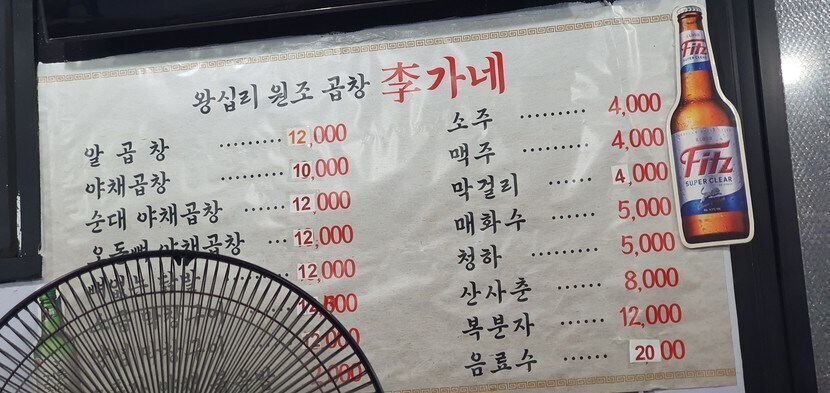 왕십리 원조 곱창 李가네
알 곱창 ········ 12,000
야채곱창 ······ 10,000
순대 야채곱창 ···· 12,000
오돌뼈 야채곱창 ·· 12,000
12,000
12,000
2,000
,000
소주 ········ 4,000
맥주 ········ 4,000
막걸리 ······ 4,000
매화수 ······ 5,000
청하 ········ 5,000
산사춘 ······ 8,000
복분자 ······ 12,000
음료수 ····· 2000
Fitz
SUPER CLEAR
Fitz
SUPER CLEAR